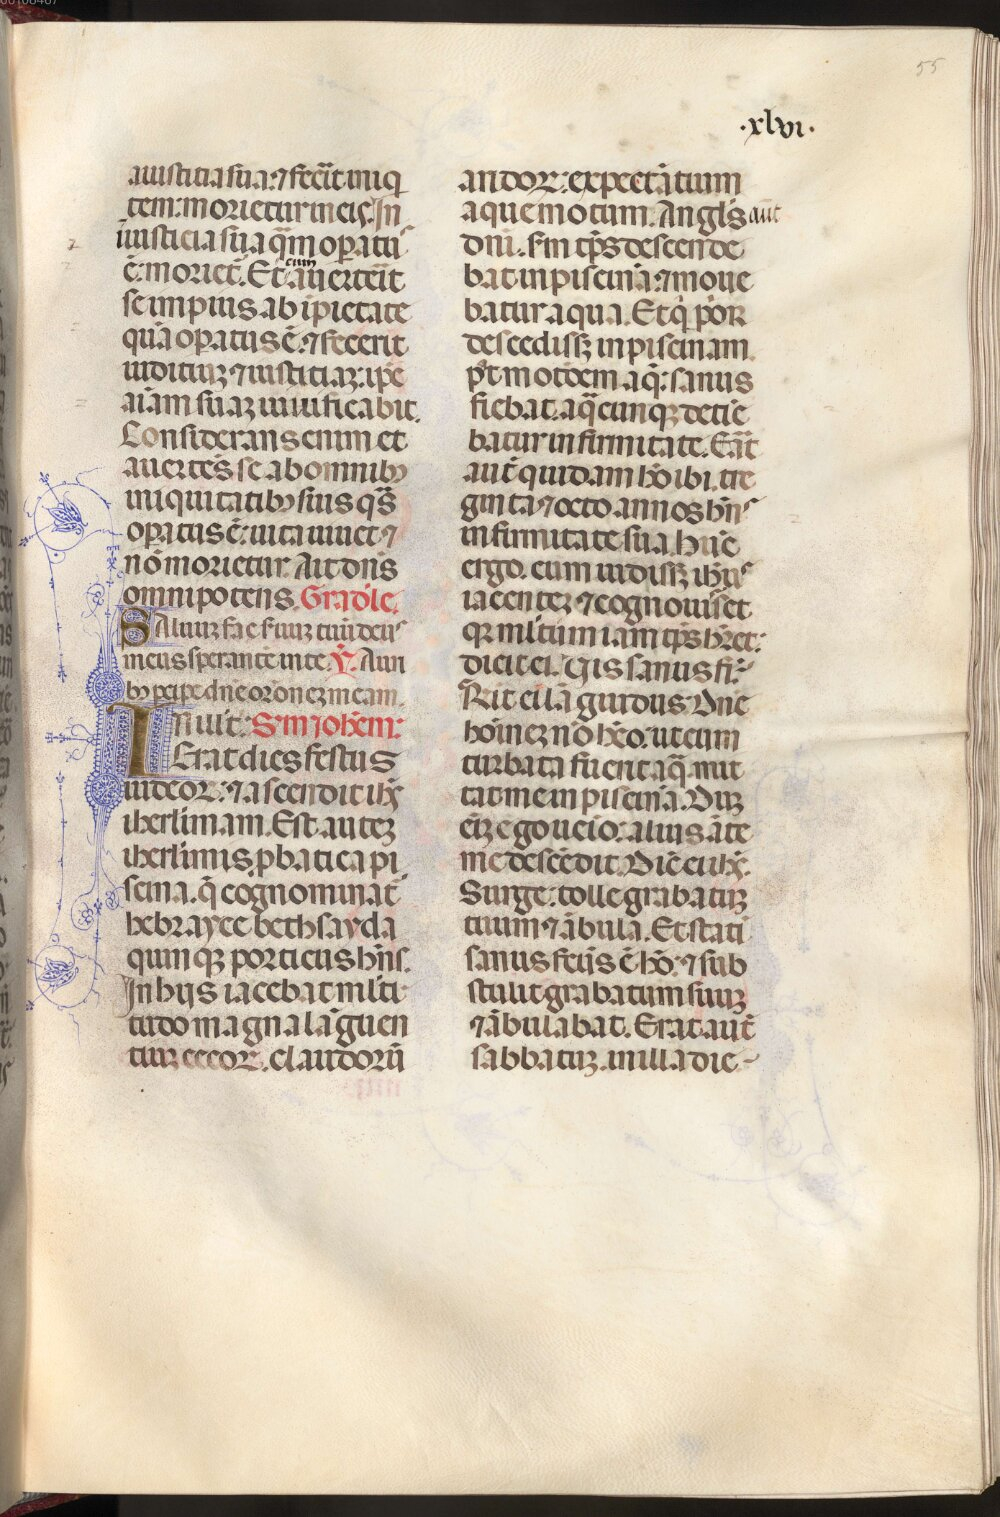 55
·xlvi·
aiusticia sua: ⁊ fec̄it iniq̄
tem: morietur in eis. In
iusticia sua qm̄ op̄atuˢ
ē: moriet̄. Et cum au̾erterit
se impius ab īpietate
quā op̄atus ē: ⁊ fecerit
iuditiuꝫ ⁊ iusticiaꝫ: ip̄e
aīam suaꝫ uiuificabit.
Considerans enim et
auertēs se ab omnibꝫ
iniquitatibꝫ suis q̄s
op̄atus ē: uita uiuet ⁊
nō morietur. Ait dn̄s
omnipotens. Grad̄le.
Saluuꝫ fac seruuꝫ tuū deuˢ
meus sperantē in te. V̄. Auri
bꝫ p̄cipe dn̄e or̄oneꝫ meam.
In illo t̄. S. m Joh̄em:
Erat dies festus
iudeoꝝ: ⁊ ascendit ih̄s
iherl̄imam. Est auteꝫ
iherl̄imis ꝓbatica pi
scina. q̄ cognominat̄
hebrayce bethsayda
quinqꝫ porticus hn̄s.
In hijs iacebat ml̄ti
tudo magna lāguen
tiuꝫ cecoꝝ. claudorū
aridoꝝ: expectātium
aque motum. Angl̄s aūt
dn̄i. sm̄ tp̄s descende
bat in piscinā: ⁊ moue
batur aqua. Et q̄ p̄or
descēdissꝫ in piscinam.
p̄t motōem aq̄: sanus
fiebat. a q̄cunqꝫ detīe
batur infirmitate. Erāt
aūt quidam hō ibi. tri
ginta ⁊ octo annos hn̄s
in infirmitate sua. Hūc
ergo. cum uidissꝫ ih̄s
iacenteꝫ ⁊ cognouisset
qꝛ ml̄tum iam tp̄s h̄ret:
dicit ei. Uis sanus fi̾i.
Rn̄t ei lāguidus. Dn̄e
hoīneꝫ nō h̄eo. ut cum
turbata fu̾it aq̄. mit
tat me in piscinā. Dūꝫ
eiꝫ ego ueīo: alius āte
me descēdit. Dic̄ ei ih̄s.
Surge: tolle grabatuꝫ
tuum ⁊ ābula. Et stati
sanus fc̄us ē hō: ⁊ sub
stulit grabatum suuꝫ
⁊ ābulabat. Erat aut̄
sabbatuꝫ. in illa die